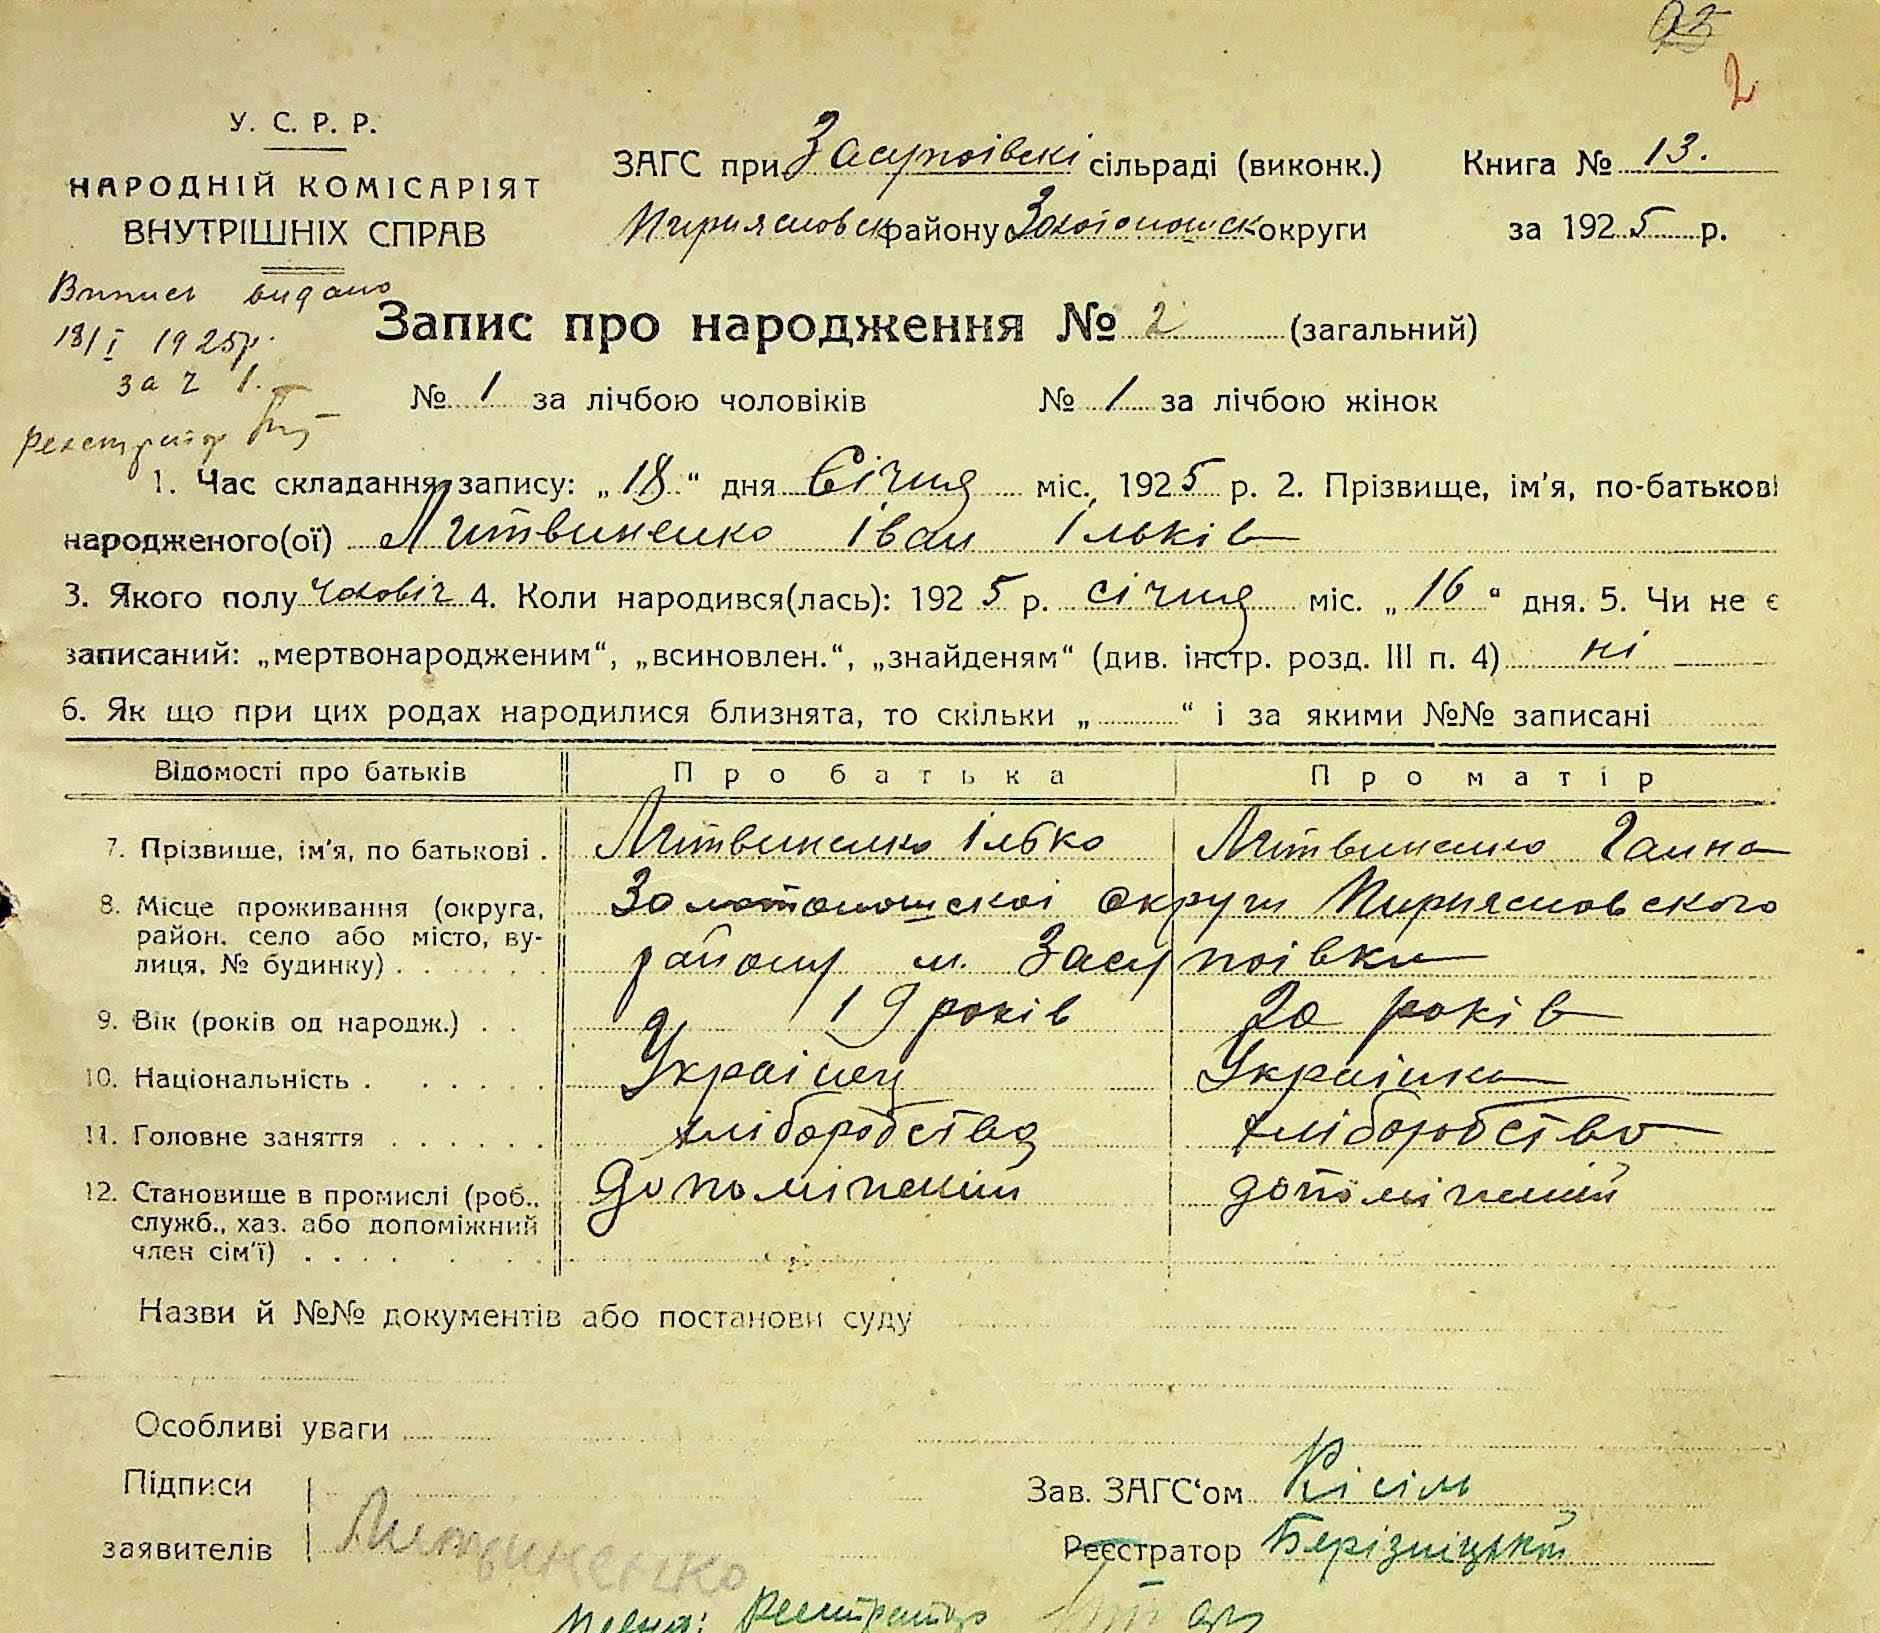 2
У. С. Р. Р.
НАРОДНІЙ КОМІСАРІЯТ
ВНУТРІШНІХ СПРАВ
ЗАГС при Засупоівскі сільраді (виконк.) Книга № 13.
району Золотоношск округи за 1925 р.
Випись видано
18/I 1925р.
за ч 1.
Реєстратор
Запис про народження № 2 (загальний)
№ 1 за лічбою чоловіків № 1 за лічбою жінок
1. Час складання запису: „18“ дня Січня міс. 1925 р. 2. Прізвище, ім'я, по-батькові
народженого(ої) Литвиненко Іван Ільків
3. Якого полу чоловіч 4. Коли народився(лась): 1925 р. січня міс. „16“ дня. 5. Чи не є
записаний: „мертвонародженим“, „всиновлен.“, „знайденям“ (див. інстр. розд. III п. 4) ні
6. Як що при цих родах народилися близнята, то скільки „ “ і за якими №№ записані
Відомості про батьків Про батька Про матір
7. Прізвище, ім'я, по батькові . Литвиненко Ілько Литвиненко Ганна
8. Місце проживання (округа, район, село або місто, вулиця, № будинку) . Золотоношскоі округи Пирнясловського
району м. Засупоівки
9. Вік (років од народж.) . . 19 років 20 років
10. Національність . Українец Українка
11. Головне заняття хліборобство хліборобство
12. Становище в промислі (роб., служб., хаз. або допоміжний член сім'ї) допоміжний допоміжний
Назви й №№ документів або постанови суду
Особливі уваги
Підписи
заявителів Литвиненко
Зав. ЗАГС‘ом Кісіль
Реєстратор Берізніцький
реєстратор